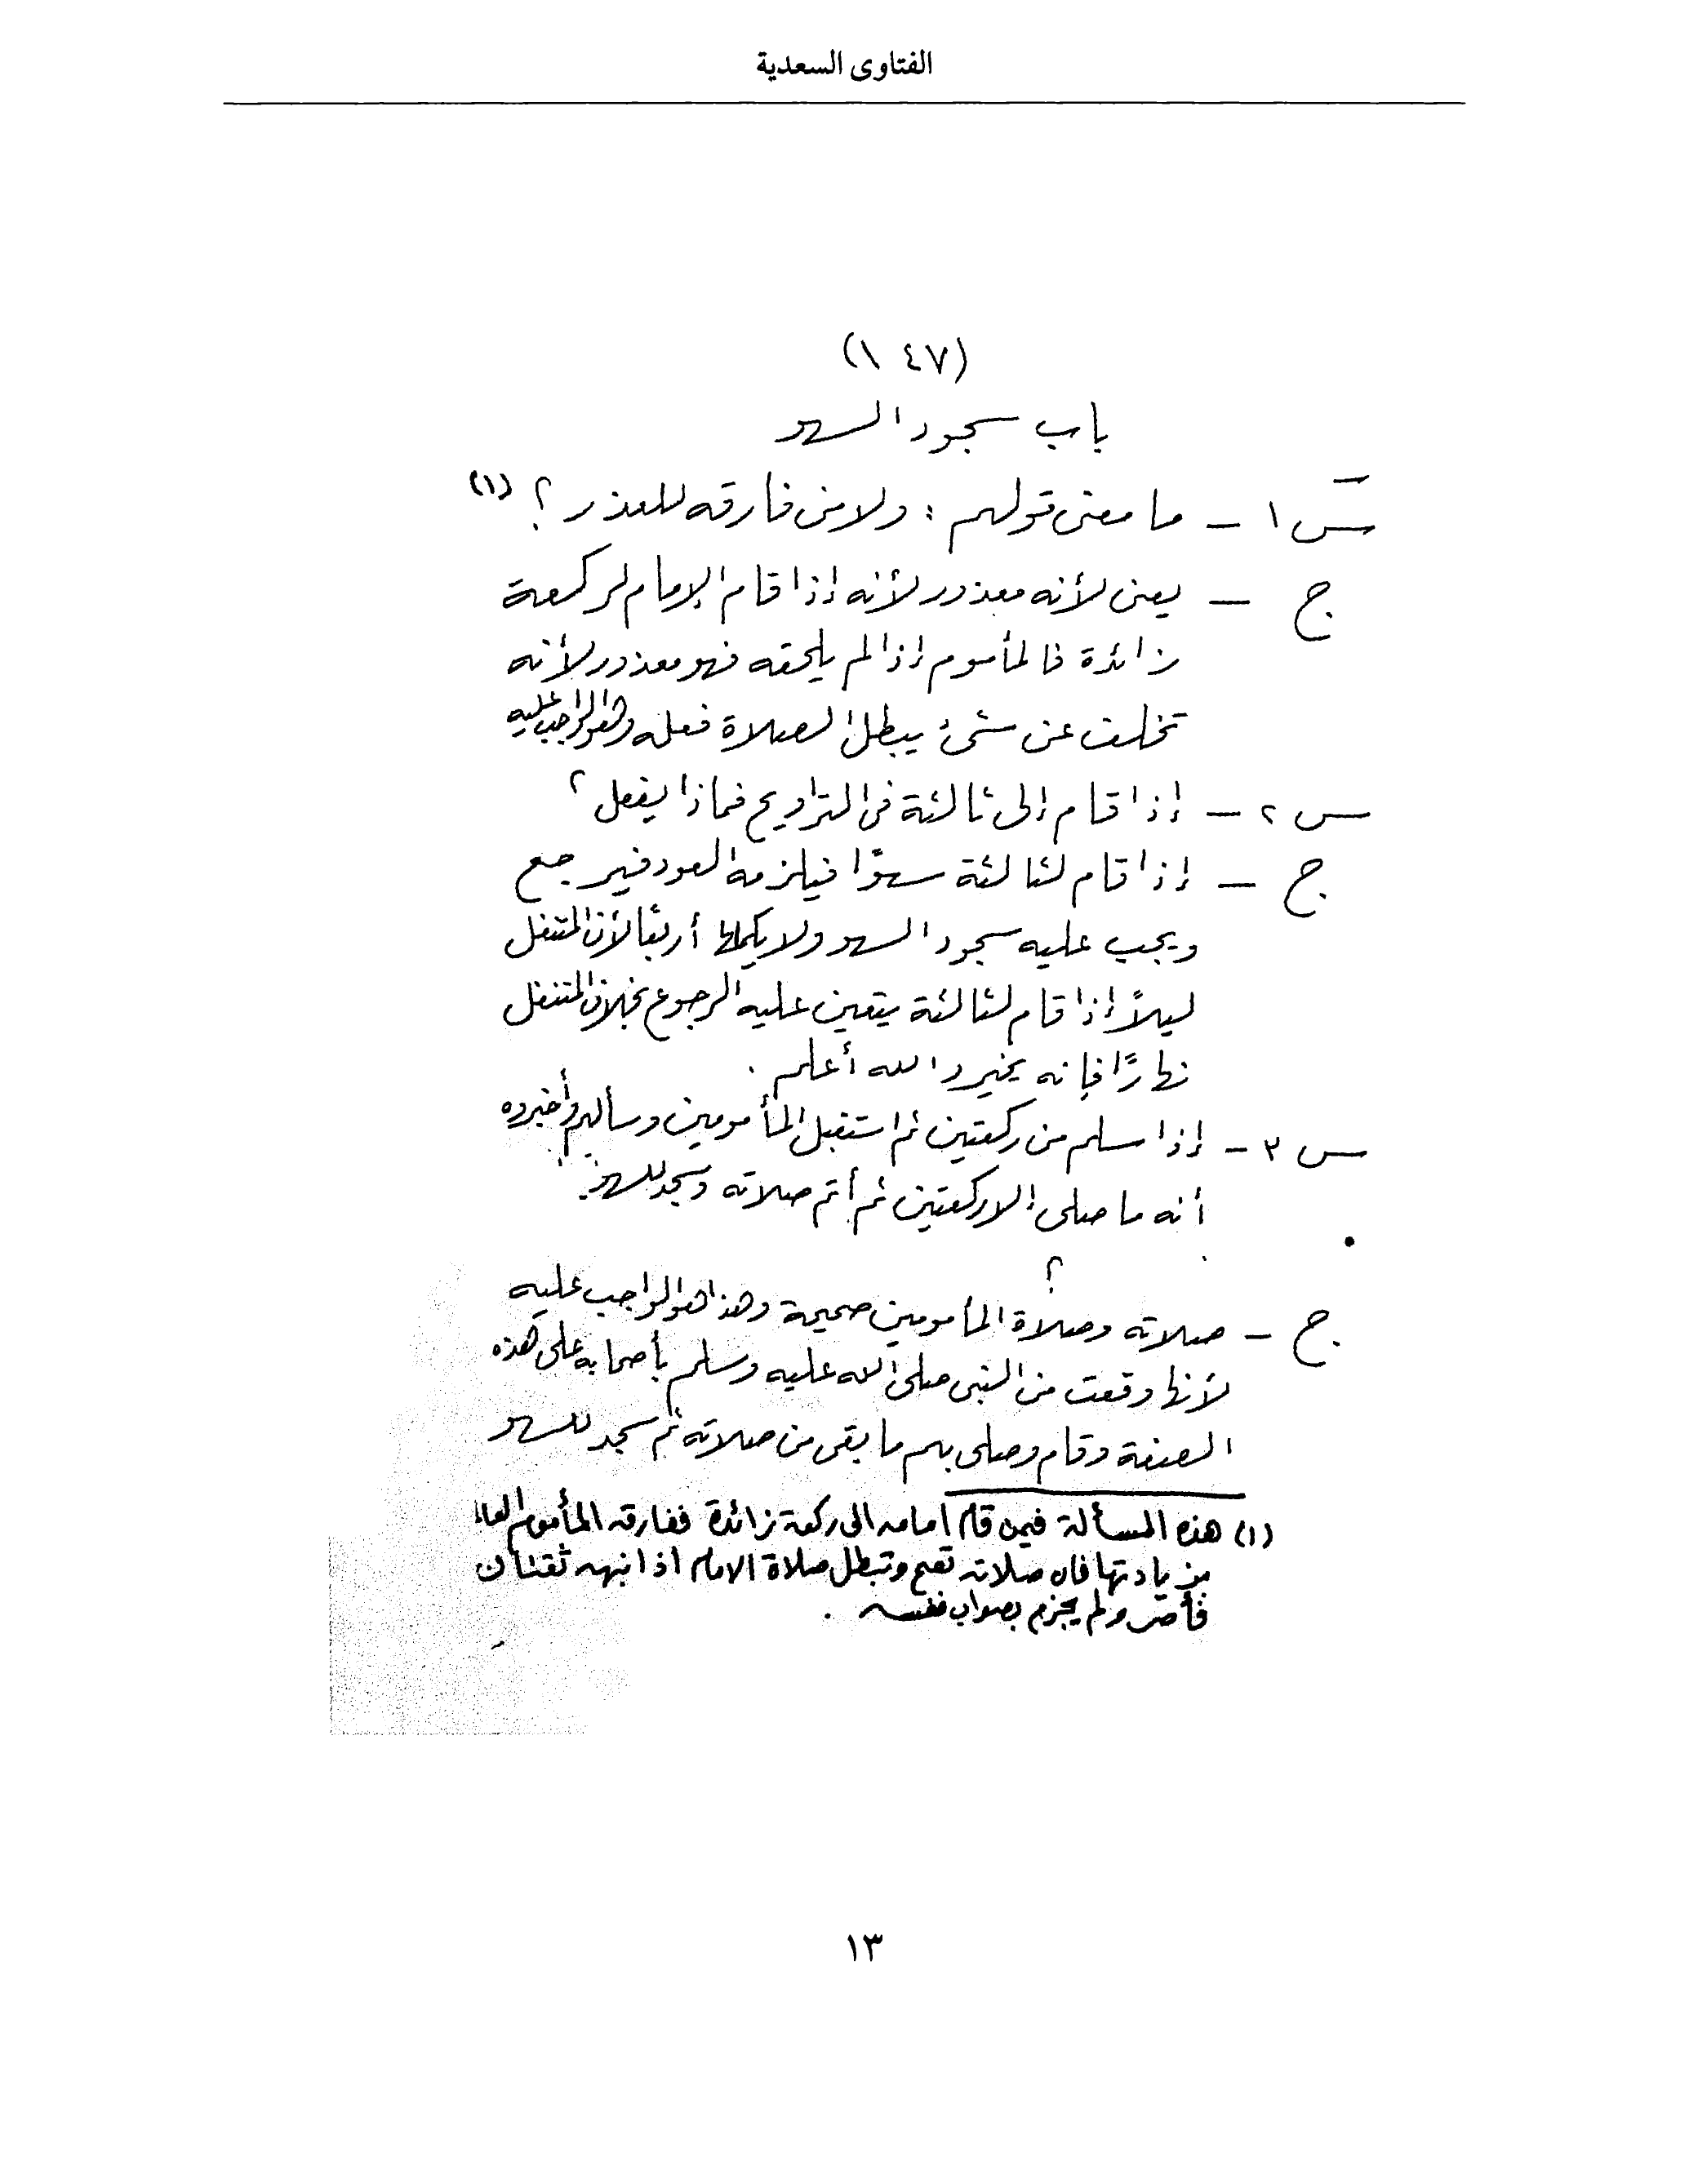 الفتاوى السعدية
(١٤٧)
باب سجود السهو
س ١ - ما معنى قولهم : ولا من فارقه للعذر ؟ (١)
ج - يعني لأنه معذور لأنه إذا قام الإمام لركعة
زائدة فالمأموم إذا لم يلحقه فهو معذور لأنه
تخلف عن شيء يبطل الصلاة فعله وهو الواجب عليه
س ٢ - إذا قام إلى ثالثة في التراويح فماذا يفعل ؟
ج - إذا قام لثالثة سهوًا فيلزمه العود فيرجع
ويجب عليه سجود السهو ولا يكملها أربعًا لأن المتنفل
ليلاً إذا قام لثالثة يتعين عليه الرجوع بخلاف المتنفل
نهارًا فإنه يخير والله أعلم .
س ٣ - إذا سلم من ركعتين ثم استقبل المأمومين وسألهم وأخبروه
أنه ما صلى إلا ركعتين ثم أتم صلاته وسجد للسهو .
؟
ج - صلاته وصلاة المأمومين صحيحة وهذا هو الواجب عليه
لأنها وقعت من النبي صلى الله عليه وسلم بأصحابه على هذه
الصفة وقام وصلى بهم ما بقى من صلاته ثم سجد للسهو
(١) هذه المسألة فيمن قام امامه الى ركعة زائدة ففارقه المأموم العالم
بزيادتها فان صلاته تصح وتبطل صلاة الامام اذا نبهه ثقتان
فأصر ولم يجزم بصواب نفسه .
١٣